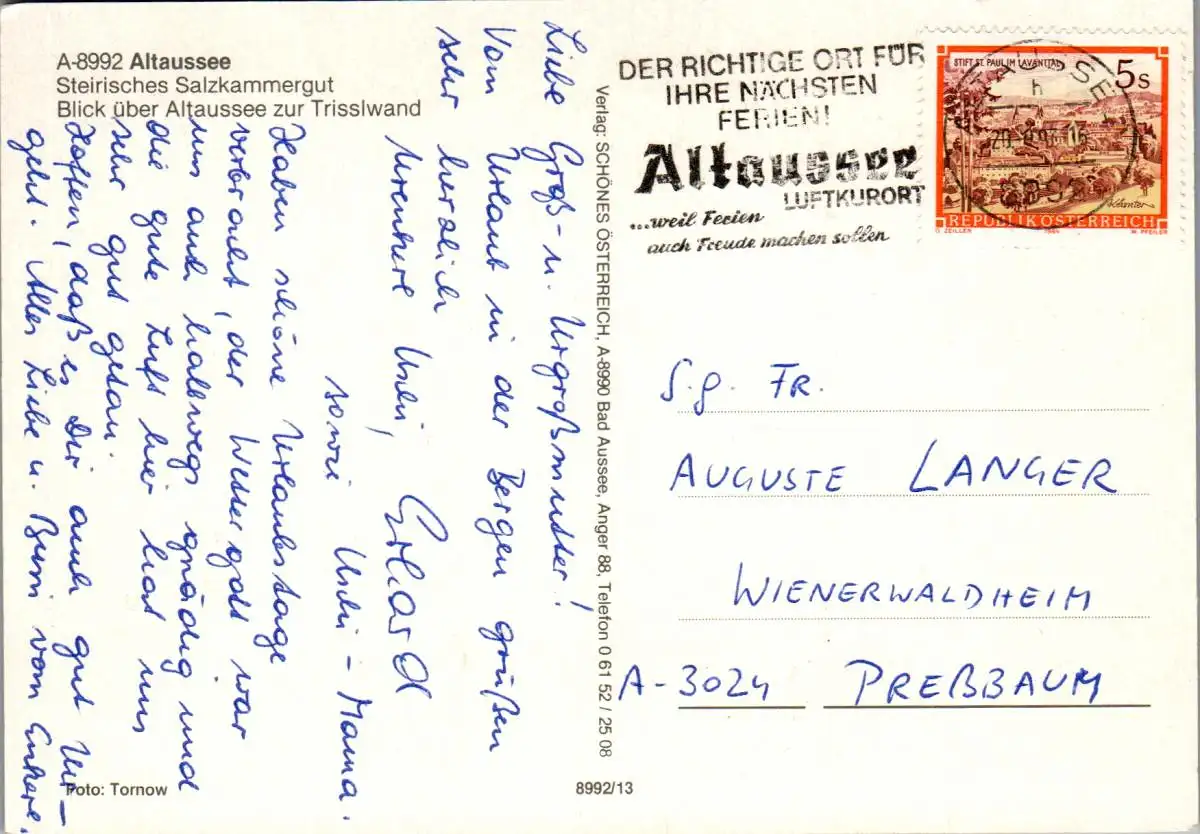 A-8992 Altaussee
Steirisches Salzkammergut
Blick über Altaussee zur Trisslwand
Liebe Groß- u. Urgroßmutter!
Vom Urlaub in der Bergen grüßen
sehr herzlich
Urenkerl Uschi, Erhard
sowie Uschi-Mama.
Haben schöne Urlaubstage
verbracht, der Wettergott war
uns auch halbwegs gnädig und
die gute Luft hier hat uns
sehr gut getan.
Hoffen, daß es Dir auch gut
geht. Alles Liebe u. Bussi vom
Foto: Tornow
8992/13
Verlag: SCHÖNES ÖSTERREICH, A-8990 Bad Aussee, Anger 88, Telefon 0 61 52 / 25 08
DER RICHTIGE ORT FÜR
IHRE NÄCHSTEN
FERIEN!
Altaussee
LUFTKURORT
...weil Ferien
auch Freude machen sollen
STIFT ST. PAUL IM LAVANTTAL
5 S
REPUBLIK ÖSTERREICH
O. ZEILLER
W. PFEILER
S.g. FR.
AUGUSTE LANGER
WIENERWALDHEIM
A-3024 PREßBAUM